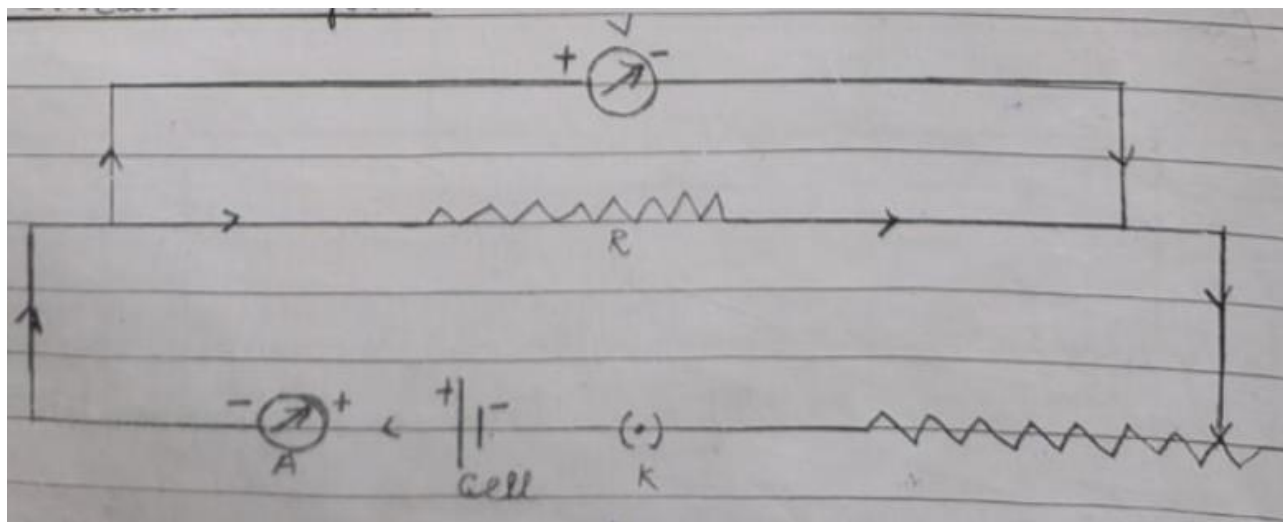 V
+ -
R
- + + -
A Cell K